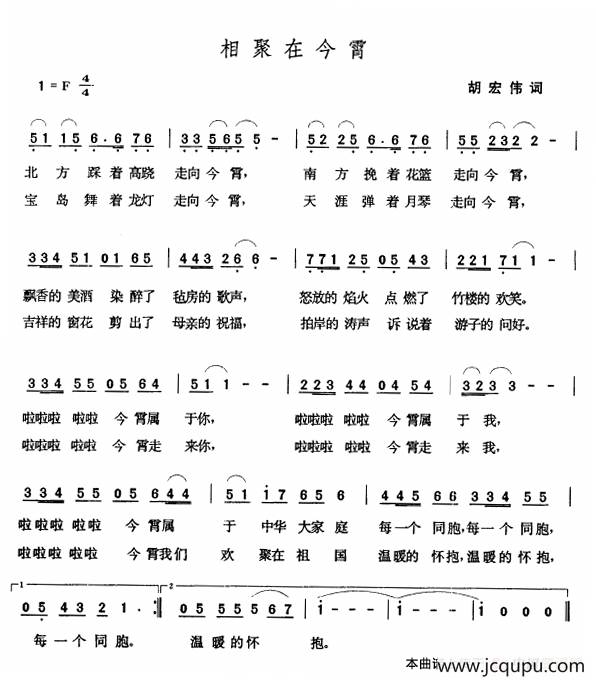 相聚在今霄
1=F 4/4 胡宏伟词
51 15 6.6 76 | 33 565 5 - | 52 25 6.6 76 | 55 232 2 - |
北方踩着高跷 走向今霄， 南方挽着花篮 走向今霄，
宝岛舞着龙灯 走向今霄， 天涯弹着月琴 走向今霄，
334 51 01 65 | 443 26 6 - | 771 25 05 43 | 221 71 1 - |
飘香的美酒 染醉了 毡房的歌声， 怒放的焰火 点燃了 竹楼的欢笑。
吉祥的窗花 剪出了 母亲的祝福， 拍岸的涛声 诉说着 游子的问好。
334 55 05 64 | 51 1 - - | 223 44 04 54 | 323 3 - - |
啦啦啦 啦啦 今霄属 于你， 啦啦啦 啦啦 今霄属 于我，
啦啦啦 啦啦 今霄走 来你， 啦啦啦 啦啦 今霄走 来我，
334 55 05 644 | 51 i7 65 6 | 445 66 334 55 |
啦啦啦 啦啦 今霄属 于 中华 大家庭 每一个 同胞，每一个 同胞，
啦啦啦 啦啦 今霄我们 欢聚在祖国 温暖的 怀抱，温暖的 怀抱，
1 2
05 43 21 · :|| 05 05 55 67 | i - - - | i - - - | i 0 0 0 ||
每一个同胞。 温暖的怀 抱。
本曲谱
www.jcqupu.com